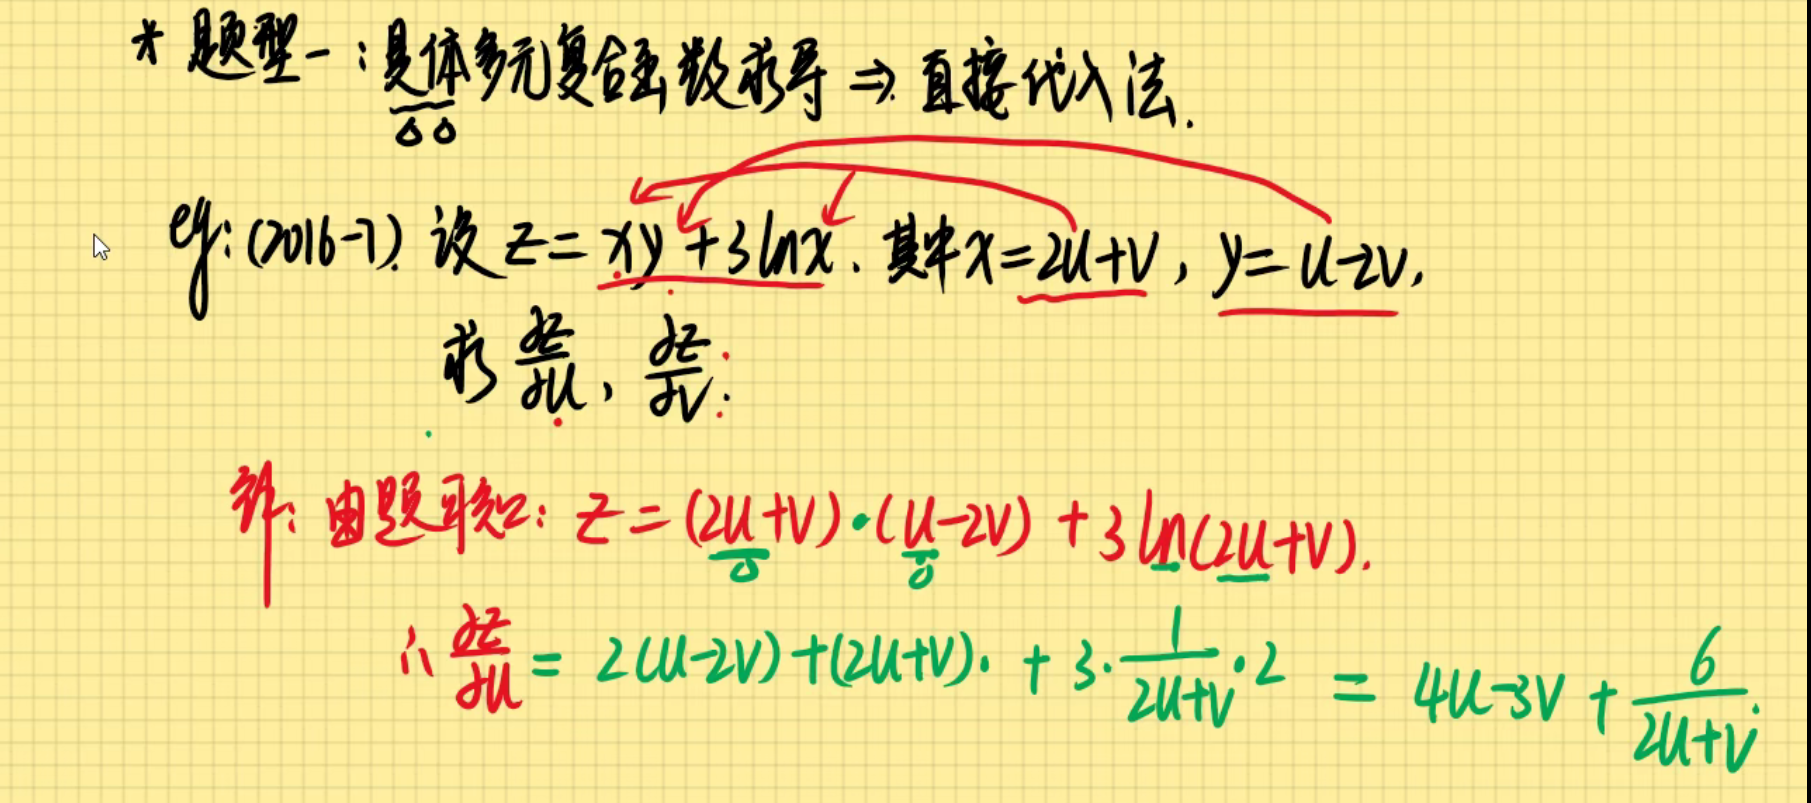 * 题型一:具体多元复合函数求导 ⇒ 直接代入法.
eg:(2016-7). 设 z = xy + 3lnx. 其中 x = 2u+v, y = u-2v,
求 ∂z/∂u, ∂z/∂v.
解: 由题可知: z = (2u+v)·(u-2v) + 3ln(2u+v).
∴ ∂z/∂u = 2(u-2v) + (2u+v)· + 3·1/(2u+v)·2 = 4u-3v + 6/(2u+v).